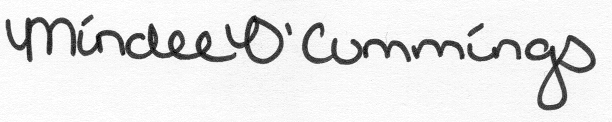 Mindee O'Cummings